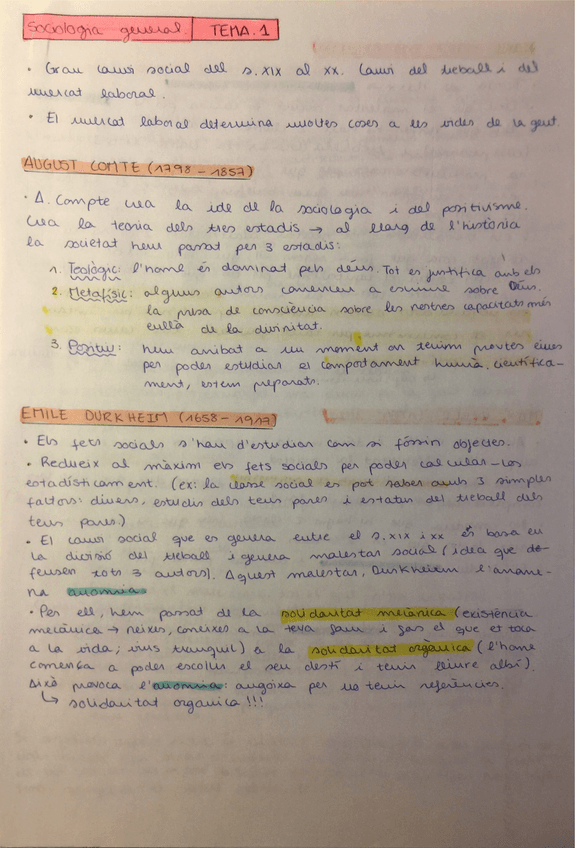 Sociologia general. TEMA. 1
· Gran canvi social del s. XIX al XX. Canvi del treball i del
mercat laboral.
· El mercat laboral determina moltes coses a les vides de la gent.
AUGUST COMTE (1798 - 1857)
· A. Compte crea la ide de la sociologia i del positivisme.
Crea la teoria dels tres estadis → al llarg de l'història
la societat hem passat per 3 estadis:
1. Teològic: l'home és dominat pels déus. Tot es justifica amb els
2. Metafísic: alguns autors comencen a escriure sobre Déus.
la presa de consciència sobre les nostres capacitats més
enllà de la divinitat.
3. Positiu: hem arribat a un moment on tenim proutes eines
per poder estudiar el comportament humà, científica-
ment, estem preparats.
EMILE DURKHEIM (1658 - 1917)
· Els fets socials s'han d'estudiar com si fóssin objectes.
· Redueix al màxim els fets socials per poder calcular-los
estadísticament. (ex: la classe social es pot saber amb 3 simples
factors: diners, estudis dels teus pares i estatus del treball dels
teus pares.)
· El canvi social que es genera entre el s. XIX i XX és basa en
la divisió del treball i genera malestar social (idea que de-
fensen tots 3 autors). Aquest malestar, Durkheim l'anome-
na anomia
· Per ell, hem passat de la solidaritat mecànica (existència
mecànica → neixes, coneixes a la teva fam i fas el que et toca
a la vida; vius tranquil) a la solidaritat orgànica (l'home
comença a poder escollir el seu destí i tenir lliure albir).
Això provoca l'anomia: angoixa per no tenir referències.
↳ solidaritat organica !!!